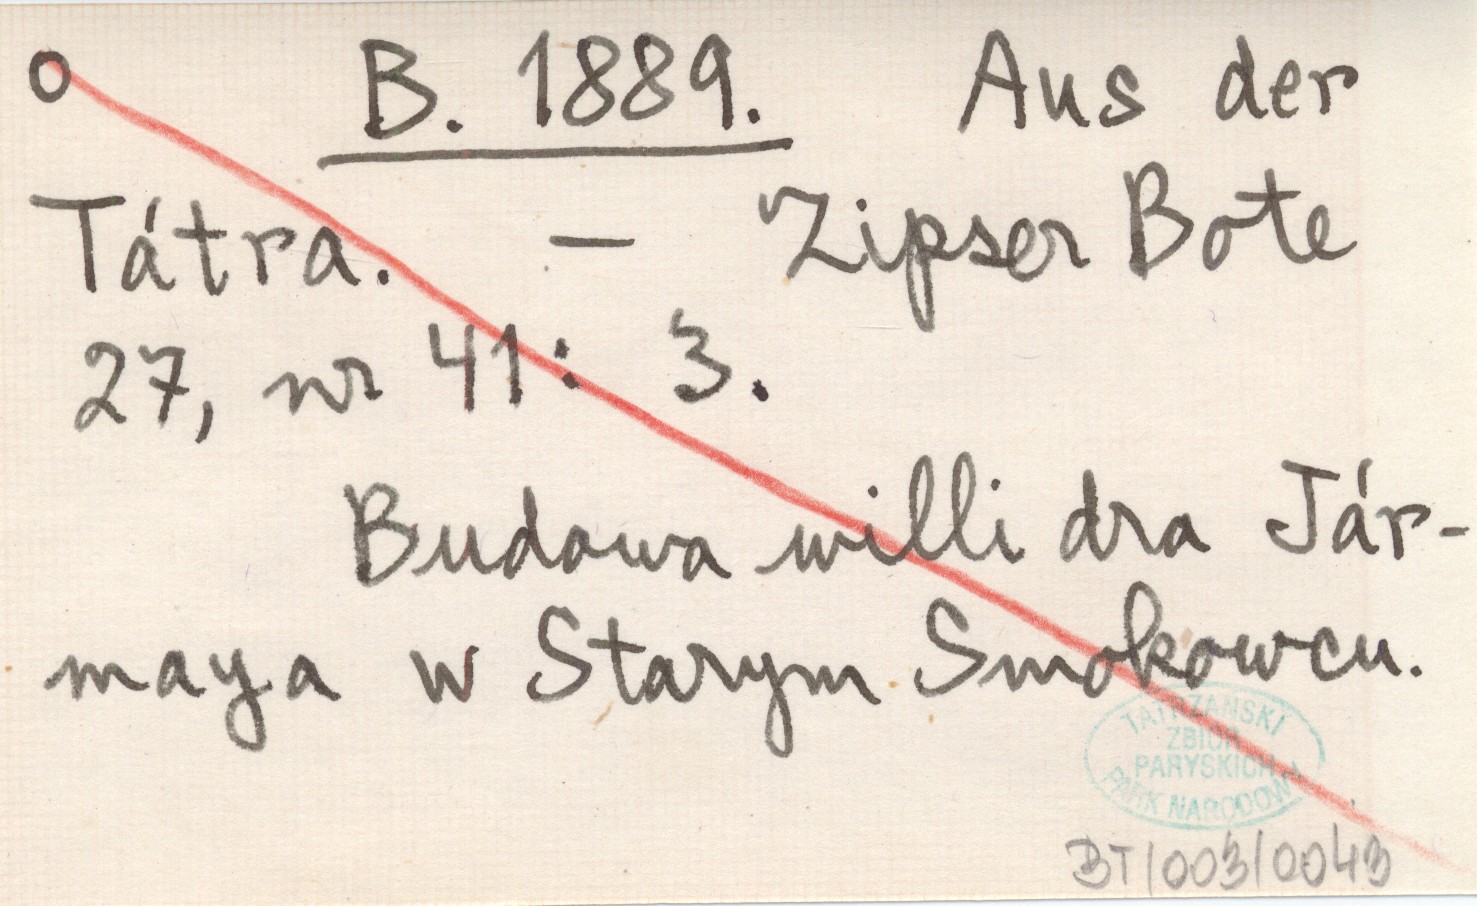 o B. 1889. Aus der
Tátra. — Zipser Bote
27, nr 41: 3.
Budowa willi dra Jár-
maya w Starym Smokowcu.
TATRZAŃSKI
ZBIÓR
PARYSKICH
PARK NARODOWY
BT/003/0043